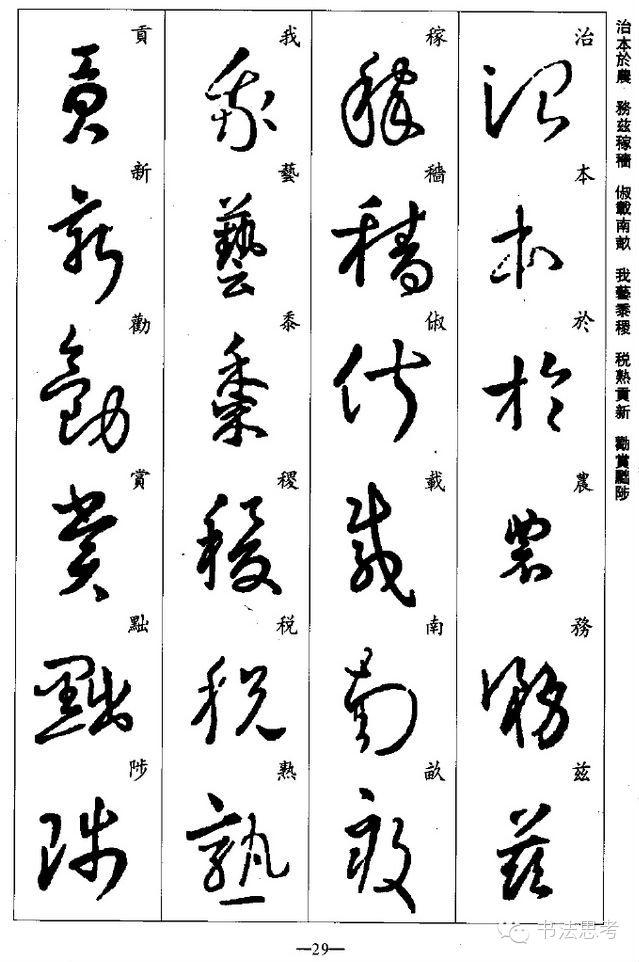 治本於農 務茲稼穡 俶載南畝 我藝黍稷 税熟貢新 勸賞黜陟
治本於農務茲
稼穡俶載南畝
我藝黍稷税熟
貢新勸賞黜陟
—29—
书法思考